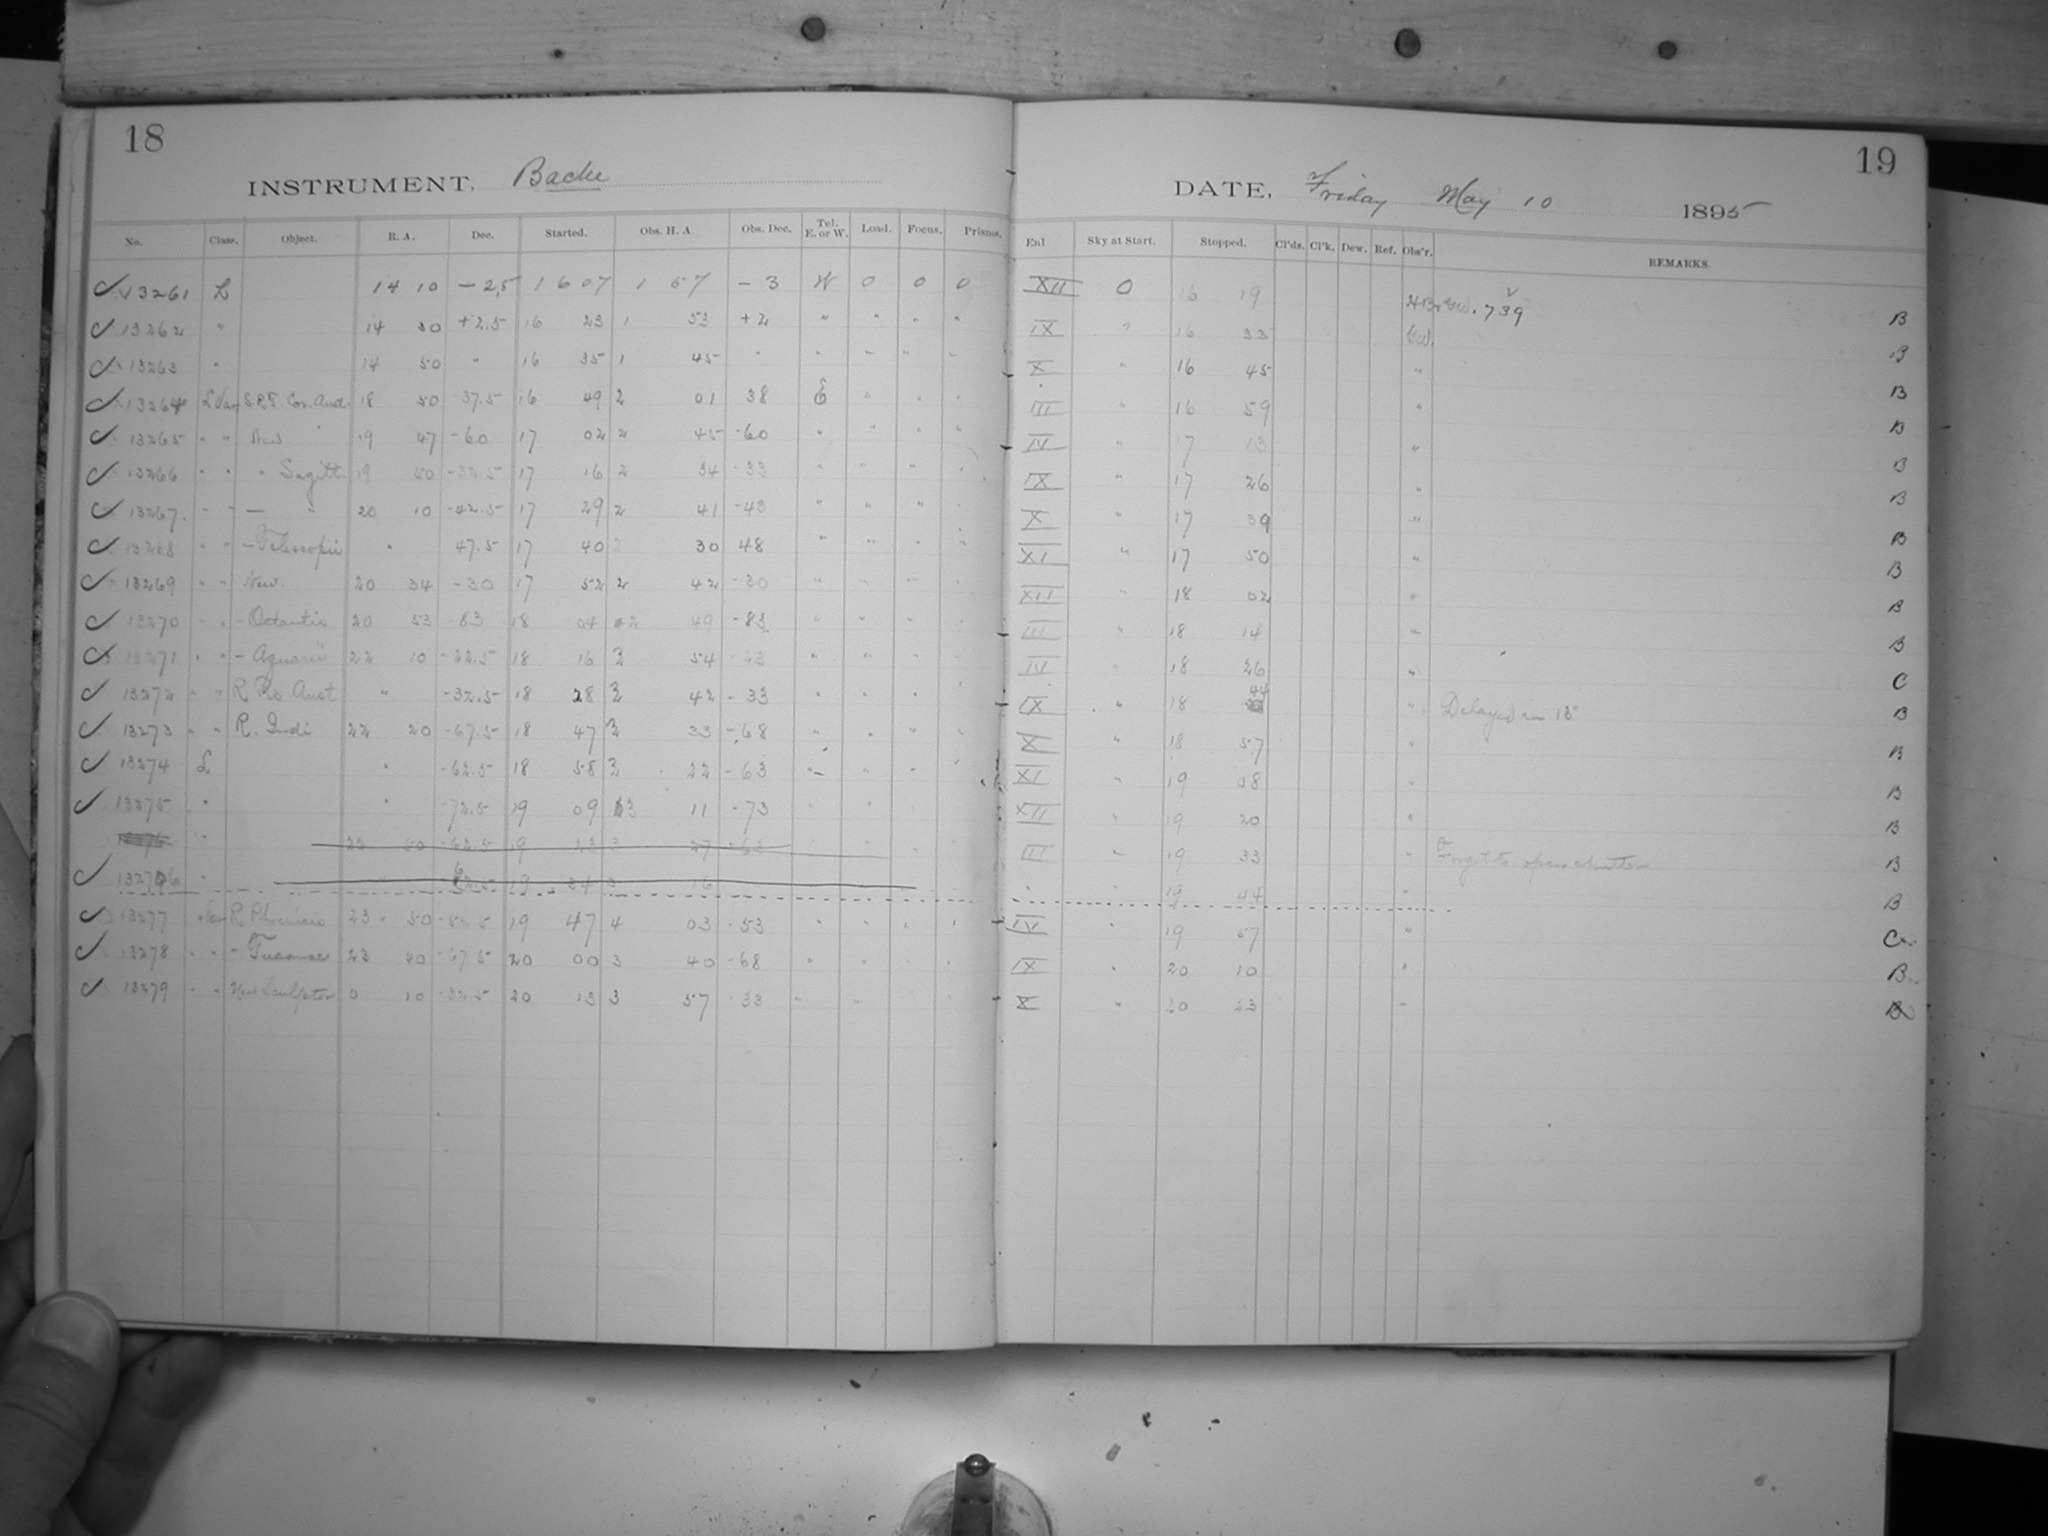 18
INSTRUMENT, Bache
No. Class. Object. R. A. Dec. Started. Obs. H. A. Obs. Dec. Tel. E. or W. Load. Focus. Prisms.
✓ 13261 L 14 10 -2.5 16 07 1 57 -3 W 0 0 0
✓ 13262 " 14 30 +2.5 16 23 1 53 +2 " " " "
✓ 13263 " 14 50 " 16 35 1 45 " " " " "
✓ 13264 L Var S.R.T. Cor. Aust. 18 50 -37.5 16 49 2 01 38 E " " "
✓ 13265 " " New 19 47 -60 17 02 2 45 -60 " " " "
✓ 13266 " " " Sagitt. 19 50 -32.5 17 16 2 34 -33 " " " "
✓ 13267 " " — " 20 10 -42.5 17 29 2 41 -43 " " " "
✓ 13268 " " - Telescopii " 47.5 17 40 2 30 48 " " " "
✓ 13269 " " New. 20 34 -30 17 52 2 42 -30 " " " "
✓ 13270 " " - Octantis 20 53 83 18 04 2 49 -83 " " " "
✓ 13271 " " - Aquarii 22 10 -22.5 18 16 3 54 -23 " " " "
✓ 13272 " " R Pis Aust " -32.5 18 28 3 42 -33 " " " "
✓ 13273 " " R. Indi 22 20 -67.5 18 47 3 33 -68 " " " "
✓ 13274 L " -62.5 18 58 3 22 -63 " " " "
✓ 13275 " " -72.5 19 09 3 11 -73
13276 " 22 50 -62.5 19 23 3 27 -63
✓ 13276 " " 62.5 19 34 3 16
✓ 13277 " Var R Phoenicis 23 50 -52.5 19 47 4 03 -53 " " " "
✓ 13278 " " - Tucanae 23 40 -67.5 20 00 3 40 -68 " " " "
✓ 13279 " " New Sculptor 0 10 -32.5 20 13 3 57 -33 " " " "
19
DATE, Friday May 10 1895
Enl Sky at Start. Stopped. Cl'ds. Cl'k. Dew. Ref. Obs'r. REMARKS.
XII 0 16 19 739 B
IX " 16 33 B
X " 16 45 " B
III " 16 59 " B
IV " 17 13 " B
IX " 17 26 " B
X " 17 39 " B
XI " 17 50 " B
XII " 18 02 " B
III " 18 14 " B
IV " 18 26 " C
IX " 18 44 " Delayed in 13m B
X " 18 57 " B
XI " 19 08 " B
XII " 19 20 " B
III " 19 33 " Forgot to open shutter B
" " 19 44 " B
IV " 19 57 " C
IX " 20 10 " B
X " 20 23 " B